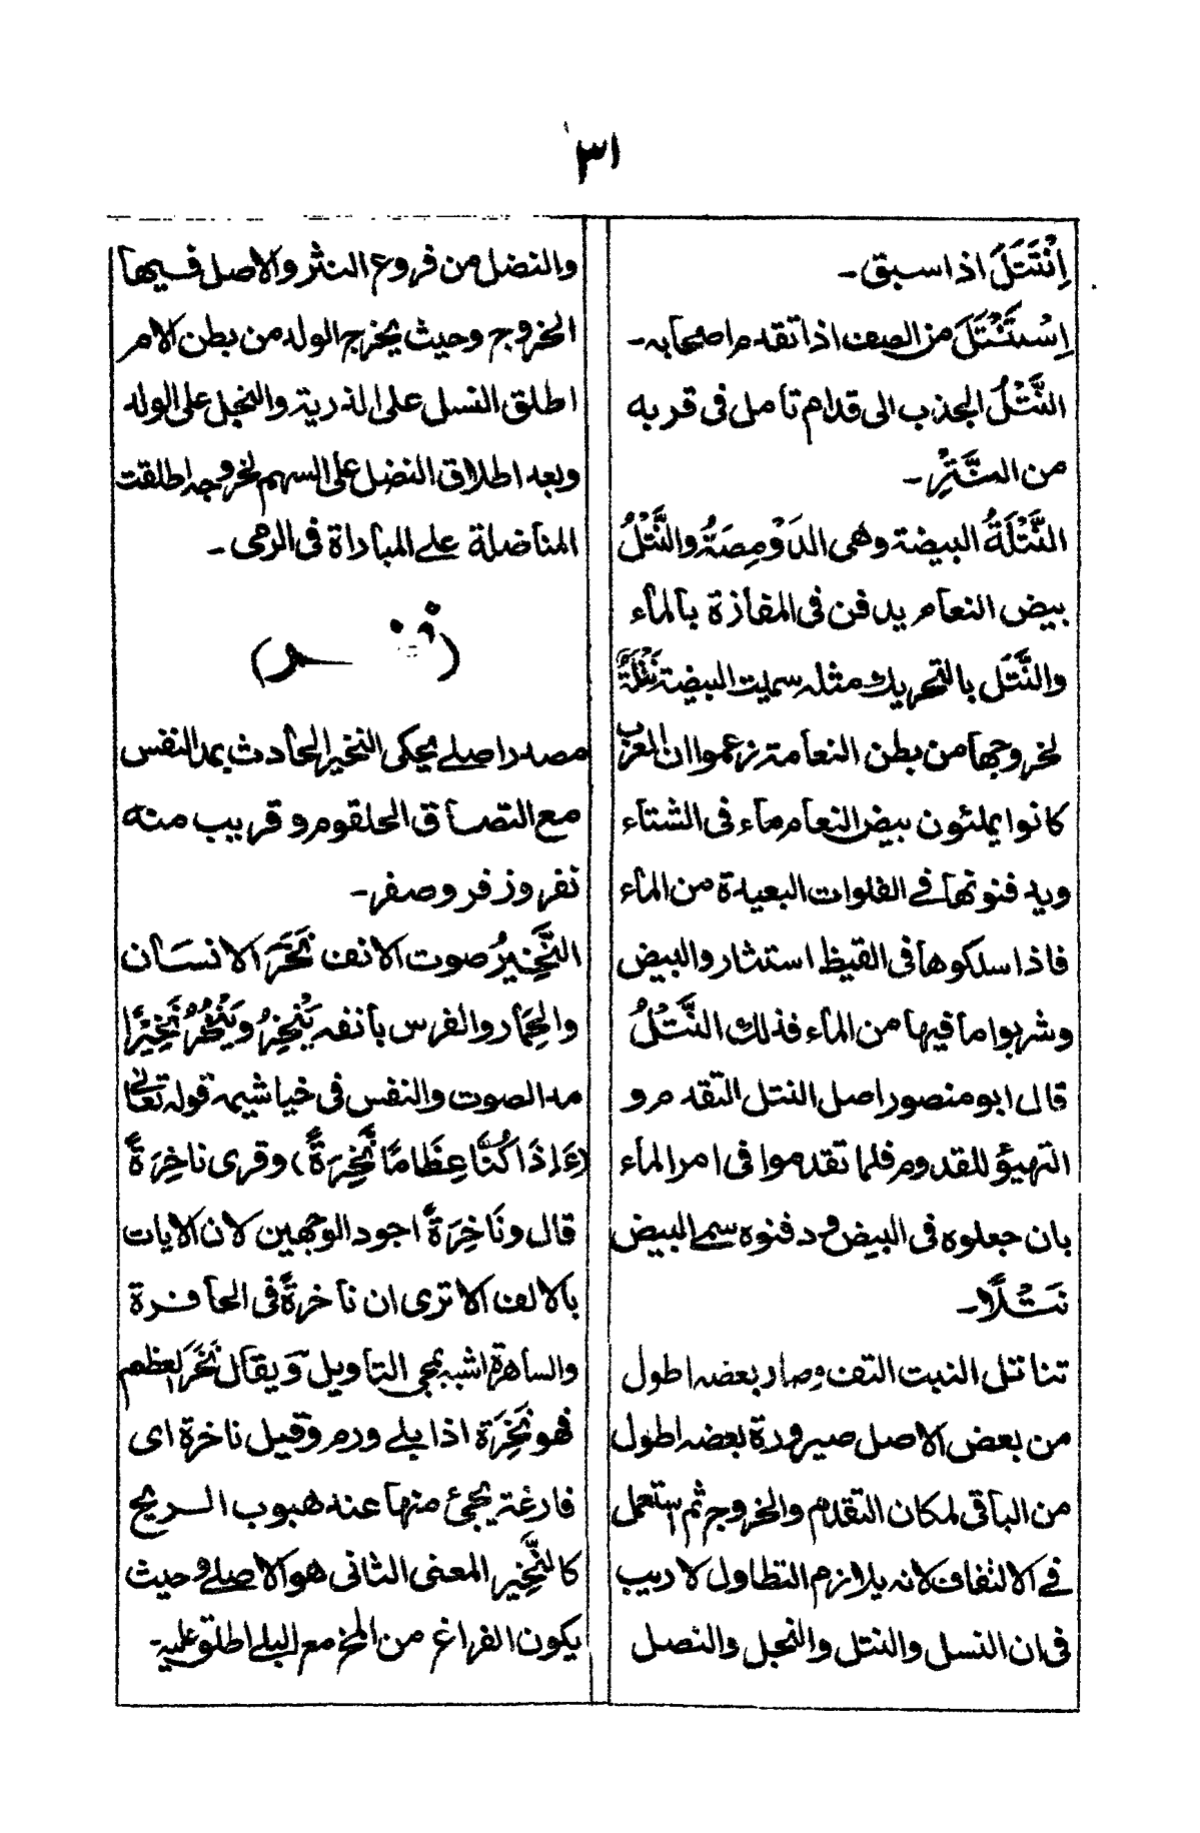 ٣١
اِنْتَتَلَ اذا سبق ـ
اِسْتَنْتَلَ من الصف اذا تقدم اصحابه ـ
النَّتْلُ الجذب الى قدام تأمل فى قربه
من النَّتْرِ ـ
النَّتْلَةُ البيضة وهى الدَوْمِصَةُ والنَّتْلُ
بيض النعام يدفن فى المفازة بالماء
والنَّتَل بالتحريك مثله سميت البيضة نَتْلَةً
لخروجها من بطن النعامة زعموا ان العرب
كانوا يملئون بيض النعام ماء فى الشتاء
ويدفنونها فے الفلوات البعيدة من الماء
فاذا سلكوها فى القيظ استثاروا البيض
وشربوا ما فيها من الماء فذلك النَّتْلُ
قال ابو منصور اصل النتل التقدم و
التهيؤ للقدوم فلما تقدموا فى امر الماء
بان جعلوه فى البيض ودفنوه سمے البيض
نَتْلًا ـ
تناتل النبت التف وصار بعضه اطول
من بعض الاصل صيرورة بعضه اطول
من الباقى لمكان التقدم والخروج ثم استعمل
فے الالتفاف لانه يلازم التطاول لا ريب
فى ان النسل والنتل والنجل والنصل
والنضل من فروع النثر والاصل فيها
الخروج وحيث يخرج الولد من بطن الام
اطلق النسل على الذرية والنجل على الولد
وبعد اطلاق النضل على السهم لخروجه اطلقت
المناضلة علے المباداة فى الرمى ـ
مصدر اصلے يحكى النخير الحادث بمد النفس
مع التصاق الحلقوم وقريب منه
نفر وزفر وصفر ـ
النَّخِيْرُ صوت الانف نَخَرَ الانسان
والحِمار والفرس بأنفه يَنْخِرُ ويَنْخُرُ نَخِيْرًا
مد الصوت والنفس فى خياشيمه قوله تعالى
(ءَاِذَا كُنَّا عِظَامًا نَّخِرَةً) وقرى ناخِرَةً
قال ونَاخِرَةً اجود الوجهين لان الايات
بالالف الا ترى ان ناخرةً فى الحافرة
والساهرة اشبه بمجى التاويل ويقال نَخَرَ العظم
فهو نَخِرَة اذا بلے ورم وقيل ناخرة اى
فارغة يجئ منها عند هبوب الريح
كالنَّخِير المعنى الثانى هو الاصلے وحيث
يكون الفراغ من المخ مع البلے اطلق عليه ـ